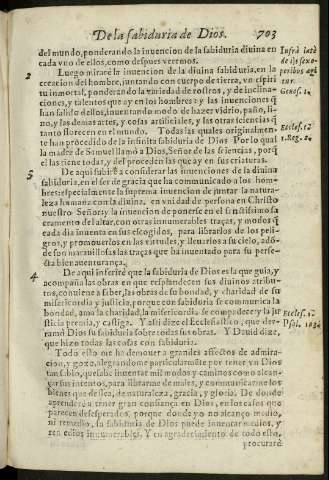 De la sabiduria de Dios. 703
del mundo, ponderando la inuencion de la sabiduria diuina en
cada vno de ellos, como despues veremos.
2 Luego mirarè la inuencion de la diuina sabiduria, en la
creacion del hombre, juntando con cuerpo de tierra, vn espiri
tu inmortal, ponderando la variedad de rostros, y de inclina-
ciones, y talentos que ay en los hombres: y las inuenciones q̃
han salido dellos, inuentando modo de hazer vidrio, paño, li-
no, y las demas artes, y cosas artificiales, y las otras ciencias q̃
tanto florecen en el mundo. Todas las quales originalmen-
te han procedido de la infinita sabiduria de Dios Por lo qual
la madre de Samuel llamò a Dios, Señor de las sciencias, porq̃
el las tiene todas, y del proceden las que ay en sus criaturas.
3 De aqui subirè a considerar las inuenciones de la diuina
sabiduria, en el ser de gracia que ha comunicado a los hom-
bres: especialmente la suprema inuencion de juntar la natura-
leza humana con la diuina, en vnidad de persona en Christo
nuestro Señor: y la inuencion de ponerse en el santissimo sa
cramento del altar, con otras innumerables traças, y modos q̃
cada dia inuenta en sus escogidos, para librarlos de los peli-
gros, y promouerlos en las virtudes, y lleuarlos a su cielo, adõ
de son marauillosas las traças que ha inuentado para su perfe-
cta bienauenturança.
4 De aqui inferirè que la sabiduria de Dios es la que guia, y
acompaña las obras en que resplandecen sus diuinos atribu-
tos, conuiene a saber, las obras de su bondad, y charidad de su
misericordia y justicia, porque con sabiduria se comunica la
bondad, ama la charidad, la misericordia se compadece y la jus
ticia premia, y castiga. Y assi dize el Ecclesiastico, que der-
ramò Dios su sabiduria sobre todas sus obras. Y Dauid dize,
que hizo todas las cosas con sabiduria.
Todo esto me ha de mouer a grandes affectos de admira-
cion, y gozo, alegrandome particularmẽte por tener vn Dios
tan sabio, que sabe inuentar mil modos y caminos con o alcan-
çar sus intentos, para librarme de males, y comunicarme los
bienes que dessea, de naturaleza, gracia, y gloria. De donde
aprenderè a tener gran confiança en Dios, en los casos que
parecen desesperados, porque donde yo no alcanço medio,
ni remedio, su sabiduria de Dios puede inuentar medios, y
remedios innumerables. Y en agradecimiento de todo esto,
procurarè
Genes. 1.
Ecclesi. 1.
1. Reg. 2.
Eccles. 1.
Psal. 103.